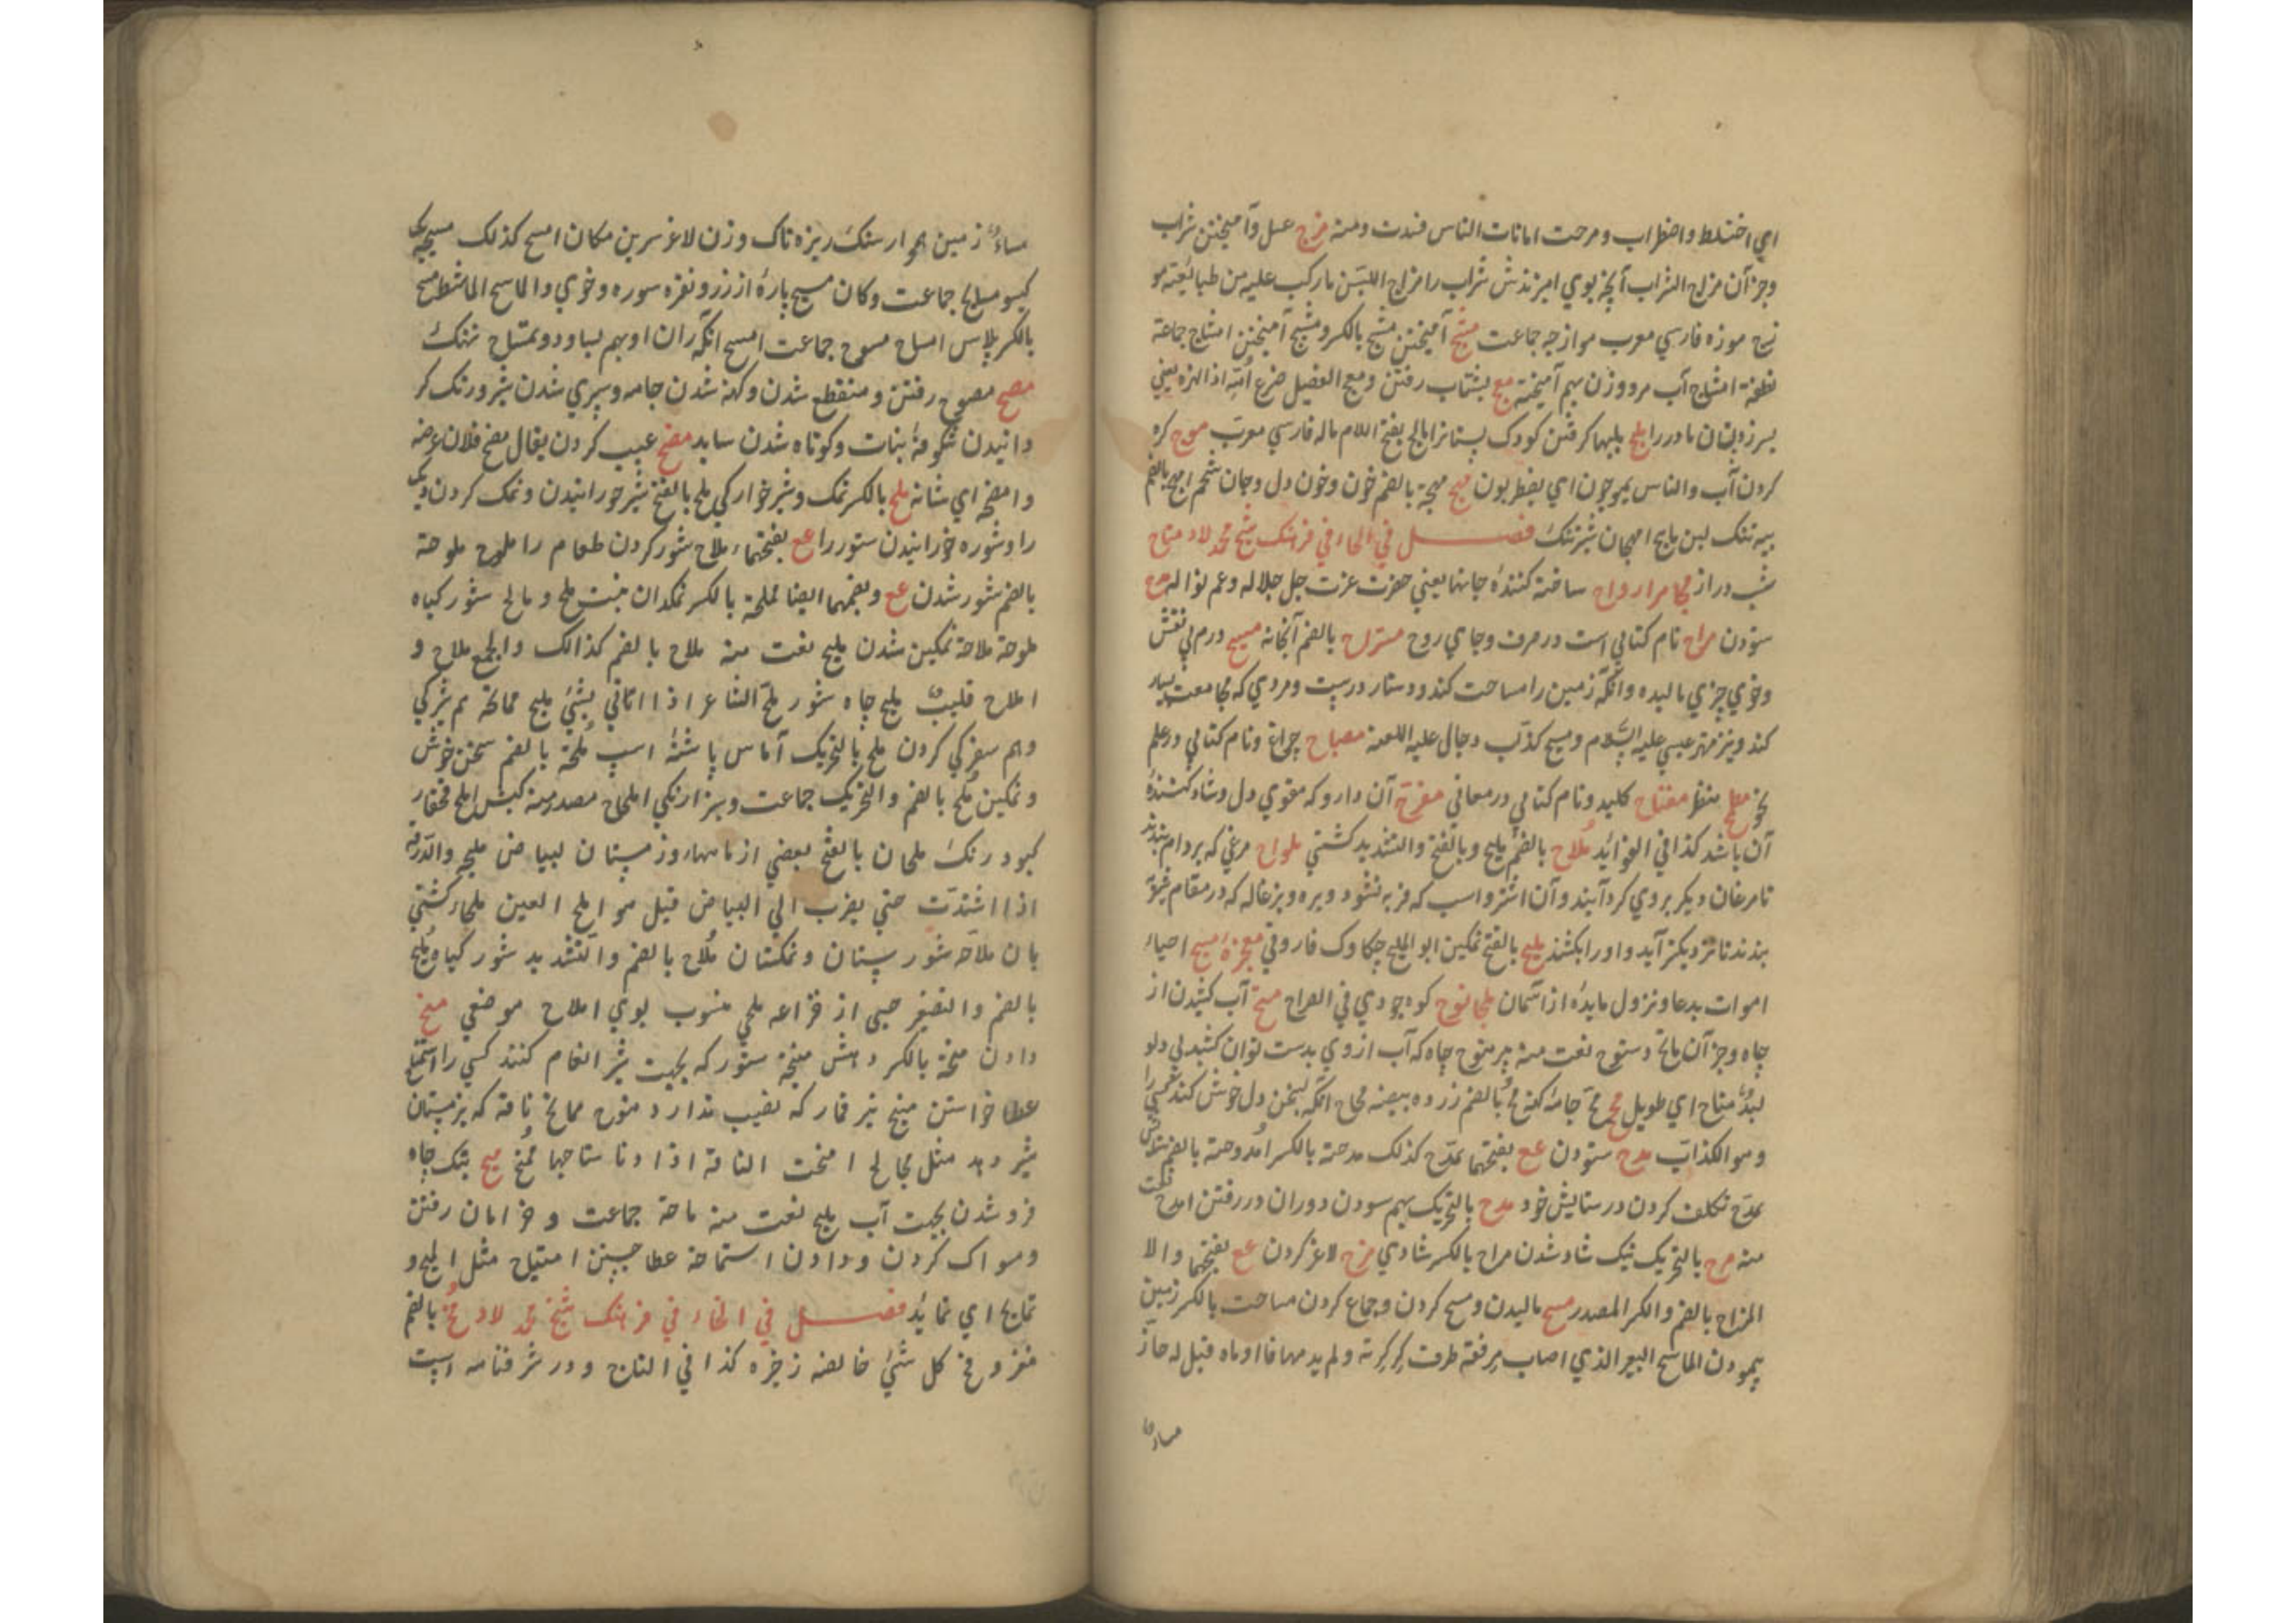 اي اختلط واضطراب ومرحت امانات الناس فسدت ومنه مزج عسل وآميختن شراب
وجز آن مزاج الشراب آنچه بوي اميزندش شراب را مزاج اللبن ماركب عليه من طبائعه مو
زج موزه فارسي معرب موازجه جماعت مشج آميختن مشج بالكسر ومشيج آميختن امشاج جماعة
نطفة امشاج آب مرد وزن بهم آميخته مع بشتاب رفتن ومعج الفصيل ضرع امّه اذا لهزه يعني
بسر زد پستان مادر را ملج بلبها كرفتن كودك پستانرا مالج بفتح اللام ماله فارسي معرب موج كره
كردن آب والناس يموجون اي يضطربون مهج مهجة بالضم خون وخون دل وجان شحم امهج بالضم
پيه تنك لبن ماهج امهجان شير تنك فصل في الحاء في فرهنك شيخ محمد لاد متاح
شب دراز ارواح ساخته كنندۀ جانها يعني حضرت عزت جل جلاله وعم نواله مدح
ستودن مراح نام كتابي است در صرف وجاي روح مستراح بالضم آبخانه مسيح درم بي نقش
وخوي چيزي ماليده وآنكه زمين را مساحت كند ودستار درست ومردي كه مجامعت بسيار
كند ونيز مهتر عيسي عليه السلام ومسيح كذاب دجال عليه اللعنه مصباح چراغ ونام كتابي در علم
نحو مطمح منظر مفتاح كليد ونام كتابي در معاني مفرح آن دارو كه مقوي دل وشاد كنندۀ
آن باشد كذا في الفوائد ملاح بالضم مليح وبالفتح والتشديد كشتي ملواح مرغي كه بر دام بندند
تا مرغان ديكر بروي كرد آيند وآن اشتر واسب كه فربه نشود وبره وبزغاله كه در مقام
بندند تا ديكر آيد واو را بكشند مليح بالفتح نمكين ابو المليح چكاوك فاروقي معجزۀ مسيح احياء
اموات بدعا ونزول مايده از آسمان ملجا نوح كوه جودي في الصراح متح آب كشيدن از
چاه وجز آن ماتح ومتوح نعت منه بير متوح چاه كه آب از وي بدست توان كشيد بي دلو
متاح اي طويل مح جامۀ كهنه مح بالضم زرده بيضه محاح آنكه بسخن دل خوش كند كسي را
وهو الكذاب مدح ستودن عع بفتحهما تمدح كذلك مدحة بالكسر امدوحة بالضم
تمدح تكلف كردن در ستايش خود مدح بالتحريك بهم سودن دو ران در رفتن امدح
منه مرح بالتحريك نيك شاد شدن مراح بالكسر شادي مزح لاغ كردن عع بفتحهما والا
المزاح بالضم والكسر المصدر مسح ماليدن ومسح كردن وجماع كردن مساحت بالكسر زمين
پيمودن الماسح البعير الذي اصاب مرفقه طرف كركرته ولم يدمها فاذا ادماه قيل له حاز
مساء
مساء زمين هموار سنك ريزه ناك وزن لاغر سرين مكان امسح كذلك مسيحه يكي
كيسو مسايح جماعت وكمان مسيح پارۀ از زر ونقره سوره وخوي والماسح الماشط مسح
بالكسر پلاس امساح مسوح جماعت امسح آنكه ران او بهم سايد وتمساح نهنك
مصح مصوح رفتن ومنقطع شدن وكهنه شدن جامه وسپري شدن شير ورنك كر
دانيدن شكوفۀ نبات وكوتاه شدن سايه مضح عيب كردن يقال مضح فلان عرضه
وامضحه اي شانه ملح بالكسر نمك وشير خواركي ملح بالفتح شير خورانيدن ونمك كردن ديك
را وشوره خورانيدن ستور را عع بفتحهما املاح شور كردن طعام را ملوح ملوحة
بالضم شور شدن عع وبضمهما ايضا مملحة بالكسر نمكدان نبت ملح ومالح شور كياه
ملوحة ملاحة نمكين شدن مليح نعت منه ملاح بالضم كذلك والجمع ملاح و
املاح قليب مليح چاه شور ملح الشاعر اذا اتاني بشيء مليح ممالحة هم شيركي
وهم سفركي كردن ملح بالتحريك آماس پاشنۀ اسب ملحة بالضم سخن خوش
ونمكين ملح بالضم والتحريك جماعت وسبز ارنكي املحاح مصدر منه كبش املح
كبود رنك ملحان بالفتح بعضي از ماهها روز مستان لبياض ملجه والزرقة
اذا اشتدت حتي يضرب الي البياض قيل هو املح العين ملاح كشتي
بان ملاحه شورستان ونمكستان ملاح بالضم والتشديد شور كياه مليح
بالضم والتصغير حيي از خزاعه ملحي منسوب بوي املاح موضعي منح
دادن منحة بالكسر دهش منيحه ستور كه بجهت شير انعام كنند كسي را استمناح
عطا خواستن منيح تير قمار كه نصيب ندارد منوح ممانح ناقه كه بزمستان
شير دهد مثل مجالح امنحت الناقة اذا دنا نتاجها ممنح ميح بتك چاه
فرو شدن بجهت آب مايح نعت منه ماحة جماعت وخرامان رفتن
ومسواك كردن ودادن استماحة عطا جستن امتياح مثل الميح و
تمايح اي تمايد فصل في الخاء في فرهنك شيخ محمد لاد مخ بالضم
مغز ومخ كل شيء خالصه زخيره كذا في التاج ودر شرفنامه است